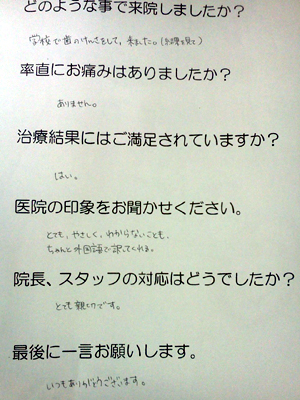 どのような事で来院しましたか？
学校で歯のけんさをして、来ました。(結果を見て)
率直にお痛みはありましたか？
ありません。
治療結果にはご満足されていますか？
はい。
医院の印象をお聞かせください。
とても、やさしく、わからないことも、
ちゃんと外国語で訳してくれる。
院長、スタッフの対応はどうでしたか？
とても親切です。
最後に一言お願いします。
いつもありがとうございます。